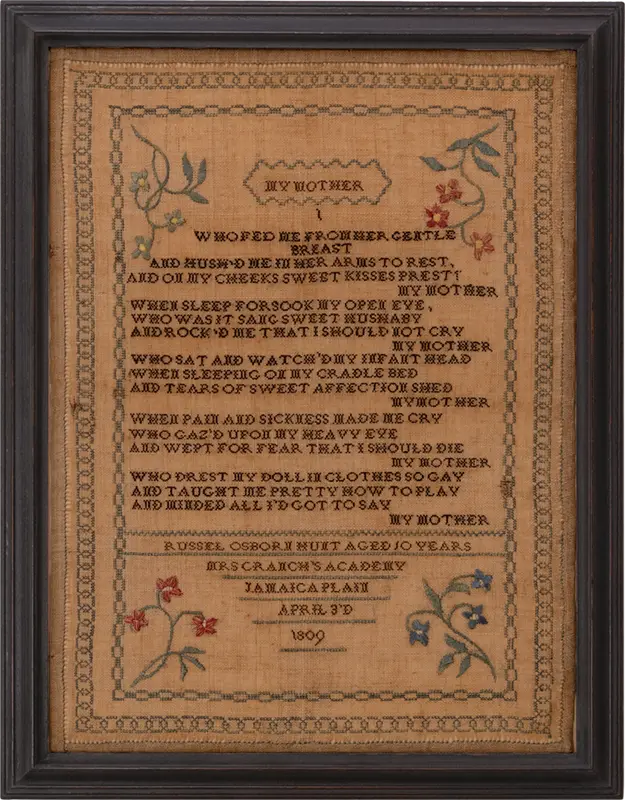 MY MOTHER
1
WHO FED ME FROM HER GENTLE
BREAST
AND HUSH'D ME IN HER ARMS TO REST,
AND ON MY CHEEKS SWEET KISSES PREST!
MY MOTHER
WHEN SLEEP FORSOOK MY OPEN EYE,
WHO WAS IT SANG SWEET HUSHABY
AND ROCK'D ME THAT I SHOULD NOT CRY
MY MOTHER
WHO SAT AND WATCH'D MY INFANT HEAD
WHEN SLEEPING ON MY CRADLE BED
AND TEARS OF SWEET AFFECTION SHED
MY MOTHER
WHEN PAIN AND SICKNESS MADE ME CRY
WHO GAZ'D UPON MY HEAVY EYE
AND WEPT FOR FEAR THAT I SHOULD DIE
MY MOTHER
WHO DREST MY DOLL IN CLOTHES SO GAY
AND TAUGHT ME PRETTY HOW TO PLAY
AND MINDED ALL I'D GOT TO SAY
MY MOTHER
RUSSEL OSBORN HUNT AGED 10 YEARS
MRS CRANCH'S ACADEMY
JAMAICA PLAIN
APRIL 3'D
1809